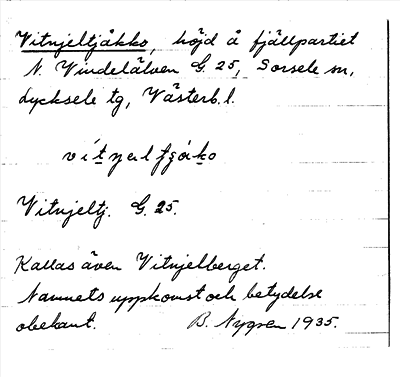 Vitnjeltjåkko, höjd å fjällpartiet
N. Vindelälven G. 25, Sorsele sn,
Lycksele tg, Västerb. l.
Vitnjeltj. G. 25.
Kallas även Vitnjelberget.
Namnets uppkomst och betydelse
obekant. B. Nygren 1935.